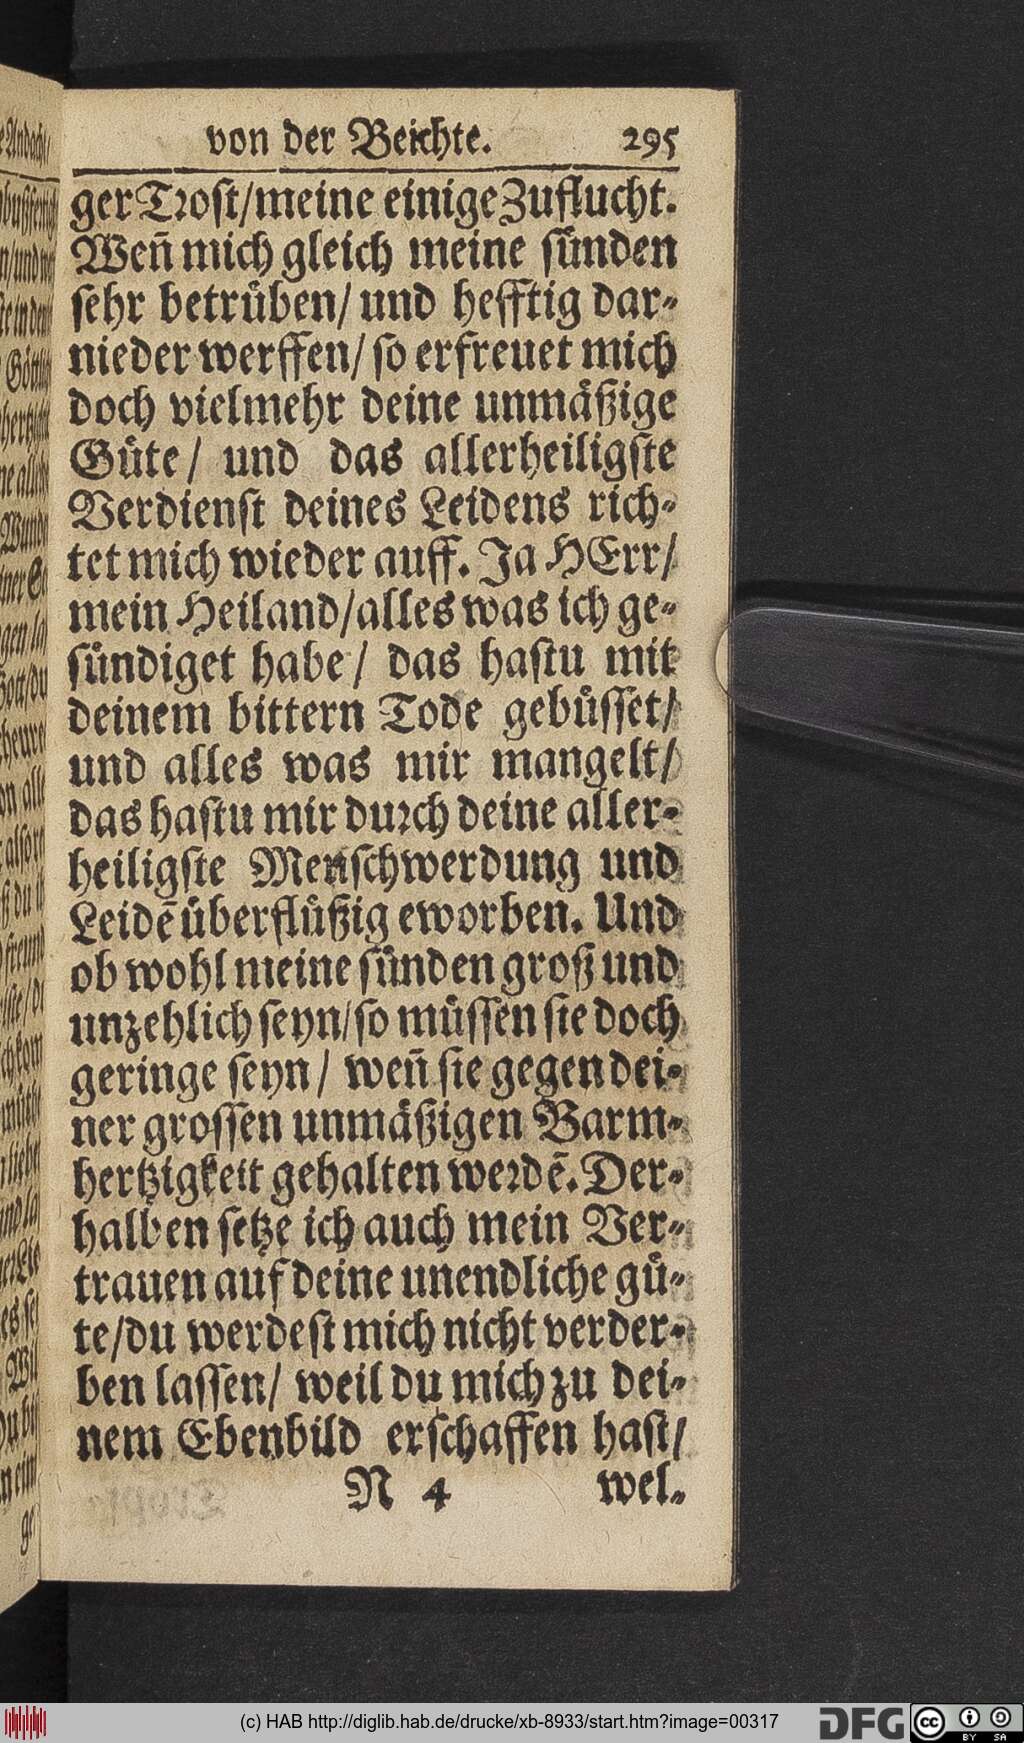 von der Beichte. 295
ger Trost/meine einige Zuflucht.
Weñ mich gleich meine sünden
sehr betrüben/ und hefftig dar-
nieder werffen/ so erfreuet mich
doch vielmehr deine unmäßige
Güte/ und das allerheiligste
Verdienst deines Leidens rich-
tet mich wieder auff. Ja HErr/
mein Heiland/alles was ich ge-
sündiget habe/ das hastu mit
deinem bittern Tode gebüsset/
und alles was mir mangelt/
das hastu mir durch deine aller-
heiligste Menschwerdung und
Leidẽ überflüßig eworben. Und
ob wohl meine sünden groß und
unzehlich seyn/so müssen sie doch
geringe seyn/ weñ sie gegen dei-
ner grossen unmäßigen Barm-
hertzigkeit gehalten werdẽ. Der-
halben setze ich auch mein Ver-
trauen auf deine unendliche gü-
te/du werdest mich nicht verder-
ben lassen/ weil du mich zu dei-
nem Ebenbild erschaffen hast/
N 4 wel-
(c) HAB http://diglib.hab.de/drucke/xb-8933/start.htm?image=00317
DFG cc BY SA